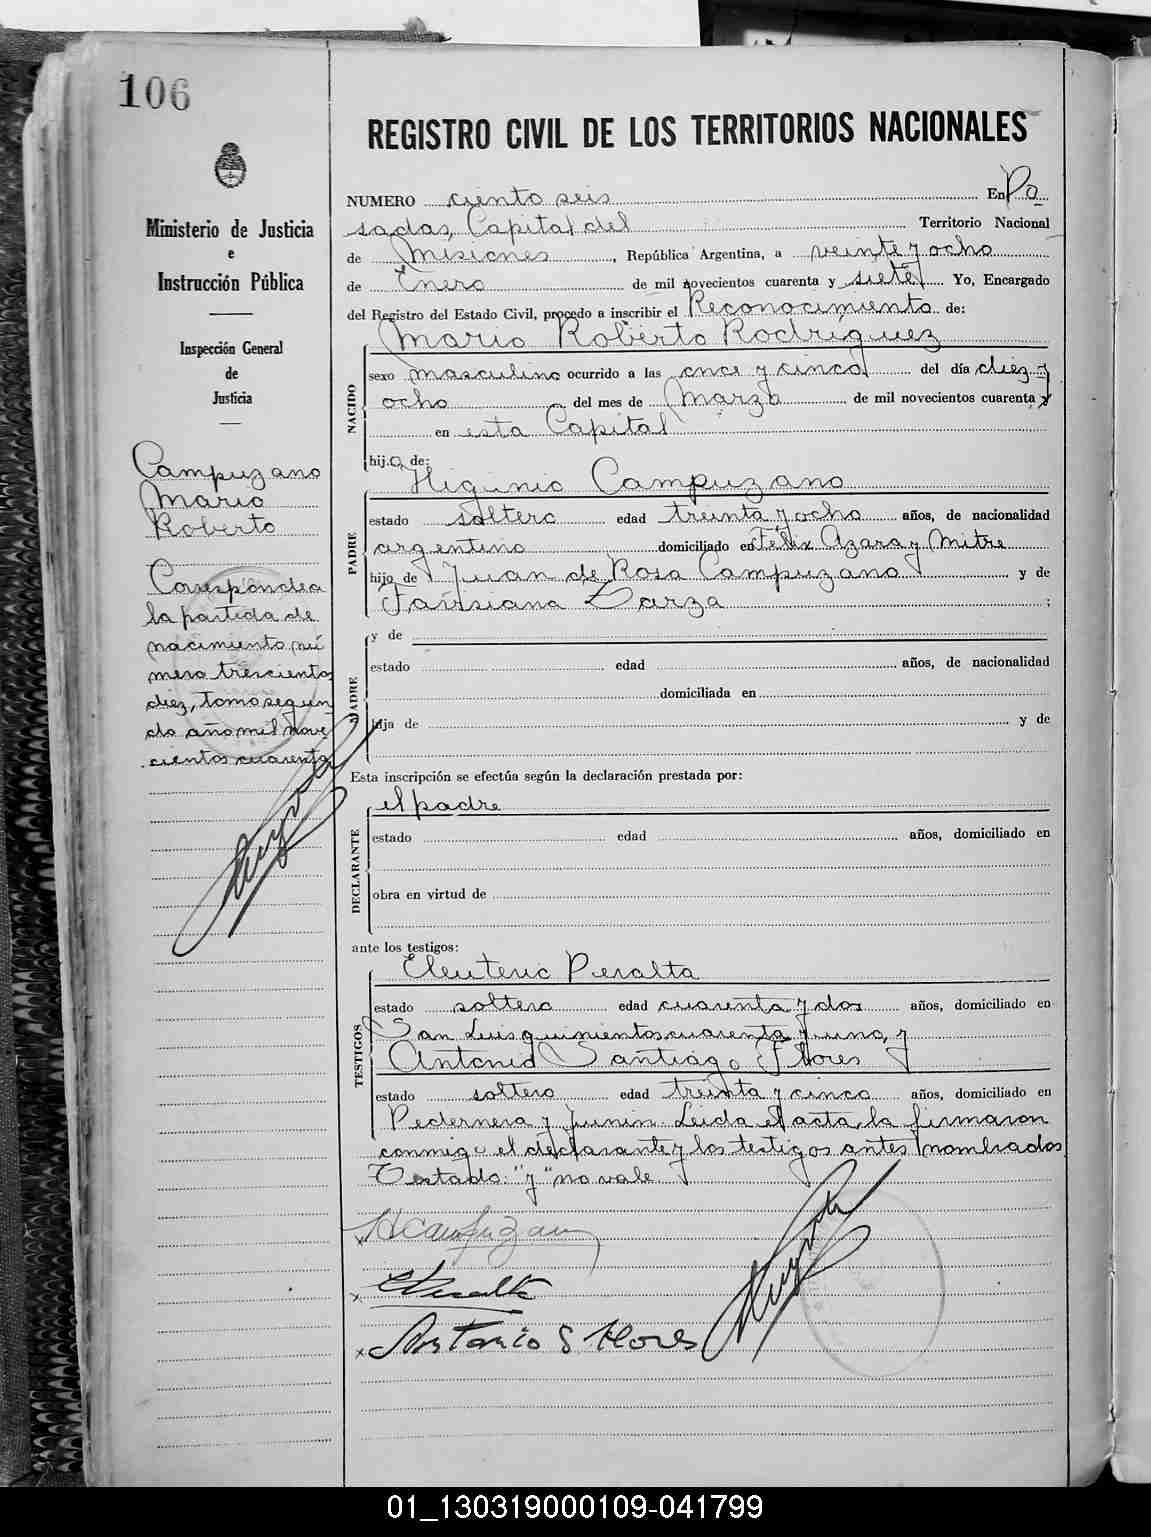 106
REGISTRO CIVIL DE LOS TERRITORIOS NACIONALES
Ministerio de Justicia
e
Instrucción Pública
Inspección General
de
Justicia
Campuzano
Mario
Roberto
Corespóndea
la partida de
nacimiento nú
mero trescientos
diez, tomo segun
do año mil nove
cientos cuarenta
NUMERO ciento seis En Po
sadas, Capital del Territorio Nacional
de Misiones, República Argentina, a veinte y ocho
de Enero de mil novecientos cuarenta y siete Yo, Encargado
del Registro del Estado Civil, procedo a inscribir el Reconocimiento de:
Mario Roberto Rodríguez
NACIDO
sexo masculino ocurrido a las once y cinco del día diez y
ocho del mes de Marzo de mil novecientos cuarenta y
en esta Capital
hijo de:
Higinio Campuzano
PADRE
estado soltero edad treinta y ocho años, de nacionalidad
argentino domiciliado en Félix Azara y Mitre
hijo de Juan de Rosa Campuzano y de
Zarza ;
MADRE
y de
estado edad años, de nacionalidad
domiciliada en
hija de y de
Esta inscripción se efectúa según la declaración prestada por:
el padre
DECLARANTE
estado edad años, domiciliado en
obra en virtud de
ante los testigos:
Eleuterio Peralta
TESTIGOS
estado soltero edad cuarenta y dos años, domiciliado en
San Luis quinientos cuarenta y uno, y
Antonio Santiago Flores
estado soltero edad treinta y cinco años, domiciliado en
Pedernera y Junin Leida el acta, la firmaron
conmigo el declarante y los testigos antes nombrados
Testado: "y" no vale
HCampuzano
EPeralta
Antonio S. Flores
01_130319000109-041799